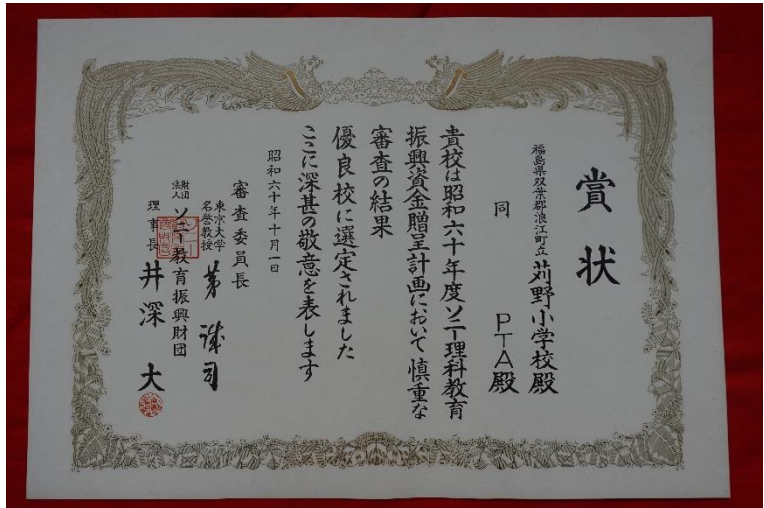 賞状
福島県双葉郡浪江町立苅野小学校殿
同 PTA殿
貴校は昭和六十年度ソニー理科教育
振興資金贈呈計画において慎重な
審査の結果
優良校に選定されました
ここに深甚の敬意を表します
昭和六十年十月一日
審査委員長
東京大学名誉教授 茅誠司
財団法人 ソニー教育振興財団
理事長 井深大